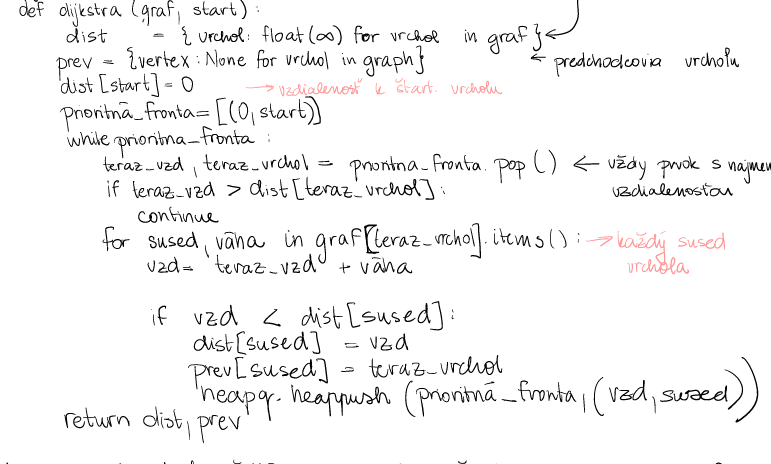 def dijkstra (graf, start) :
dist = { vrchol: float(∞) for vrchol in graf }
prev = {vertex : None for vrchol in graph} ← predchodcovia vrcholu
dist [start] = 0 → vzdialenosť k štart. vrcholu
prioritná_fronta = [(0, start)]
while prioritna_fronta :
teraz_vzd, teraz_vrchol = prioritna_fronta. pop () ← vždy prvok s najmen
vzdialenosťou
if teraz_vzd > dist [teraz_vrchol] :
continue
for sused, váha in graf [teraz_vrchol]. items () : → každý sused
vrchola
vzd = teraz_vzd + váha
if vzd < dist [sused] :
dist [sused] = vzd
prev [sused] = teraz_vrchol
heapq. heappush (prioritná_fronta, (vzd, sused))
return dist, prev